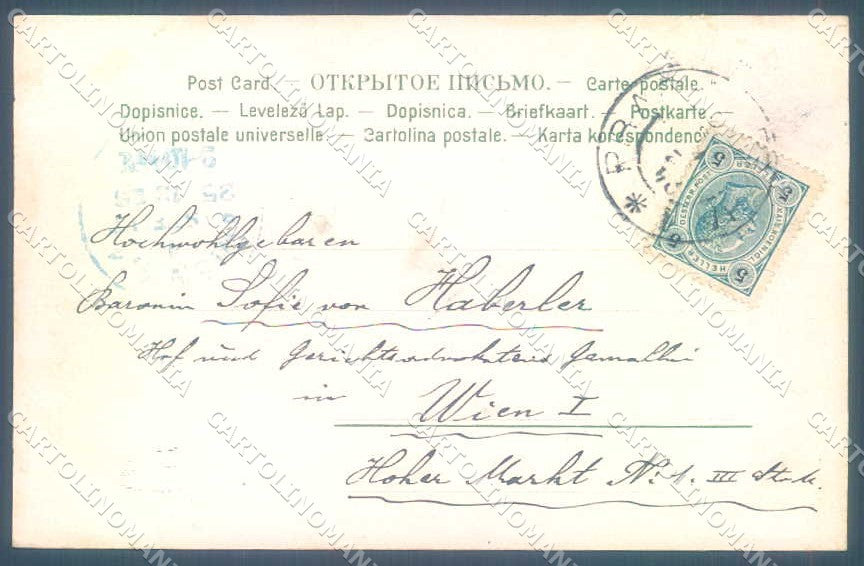 Post Card. — ОТКРЫТОЕ ПИСЬМО. — Carte postale.
Dopisnice. — Levelező Lap. — Dopisnica. — Briefkaart. — Postkarte. —
Union postale universelle. — Cartolina postale. — Karta korespondenc
Hochwohlgeboren
Baronin Sofie von Haberler
Hof und Gerichtsadvokatens Gemahlin
in
Wien I
Hoher Markt No. 1. III Stock.
5 5 5 5
HELLER
CARTOLINOMANIA